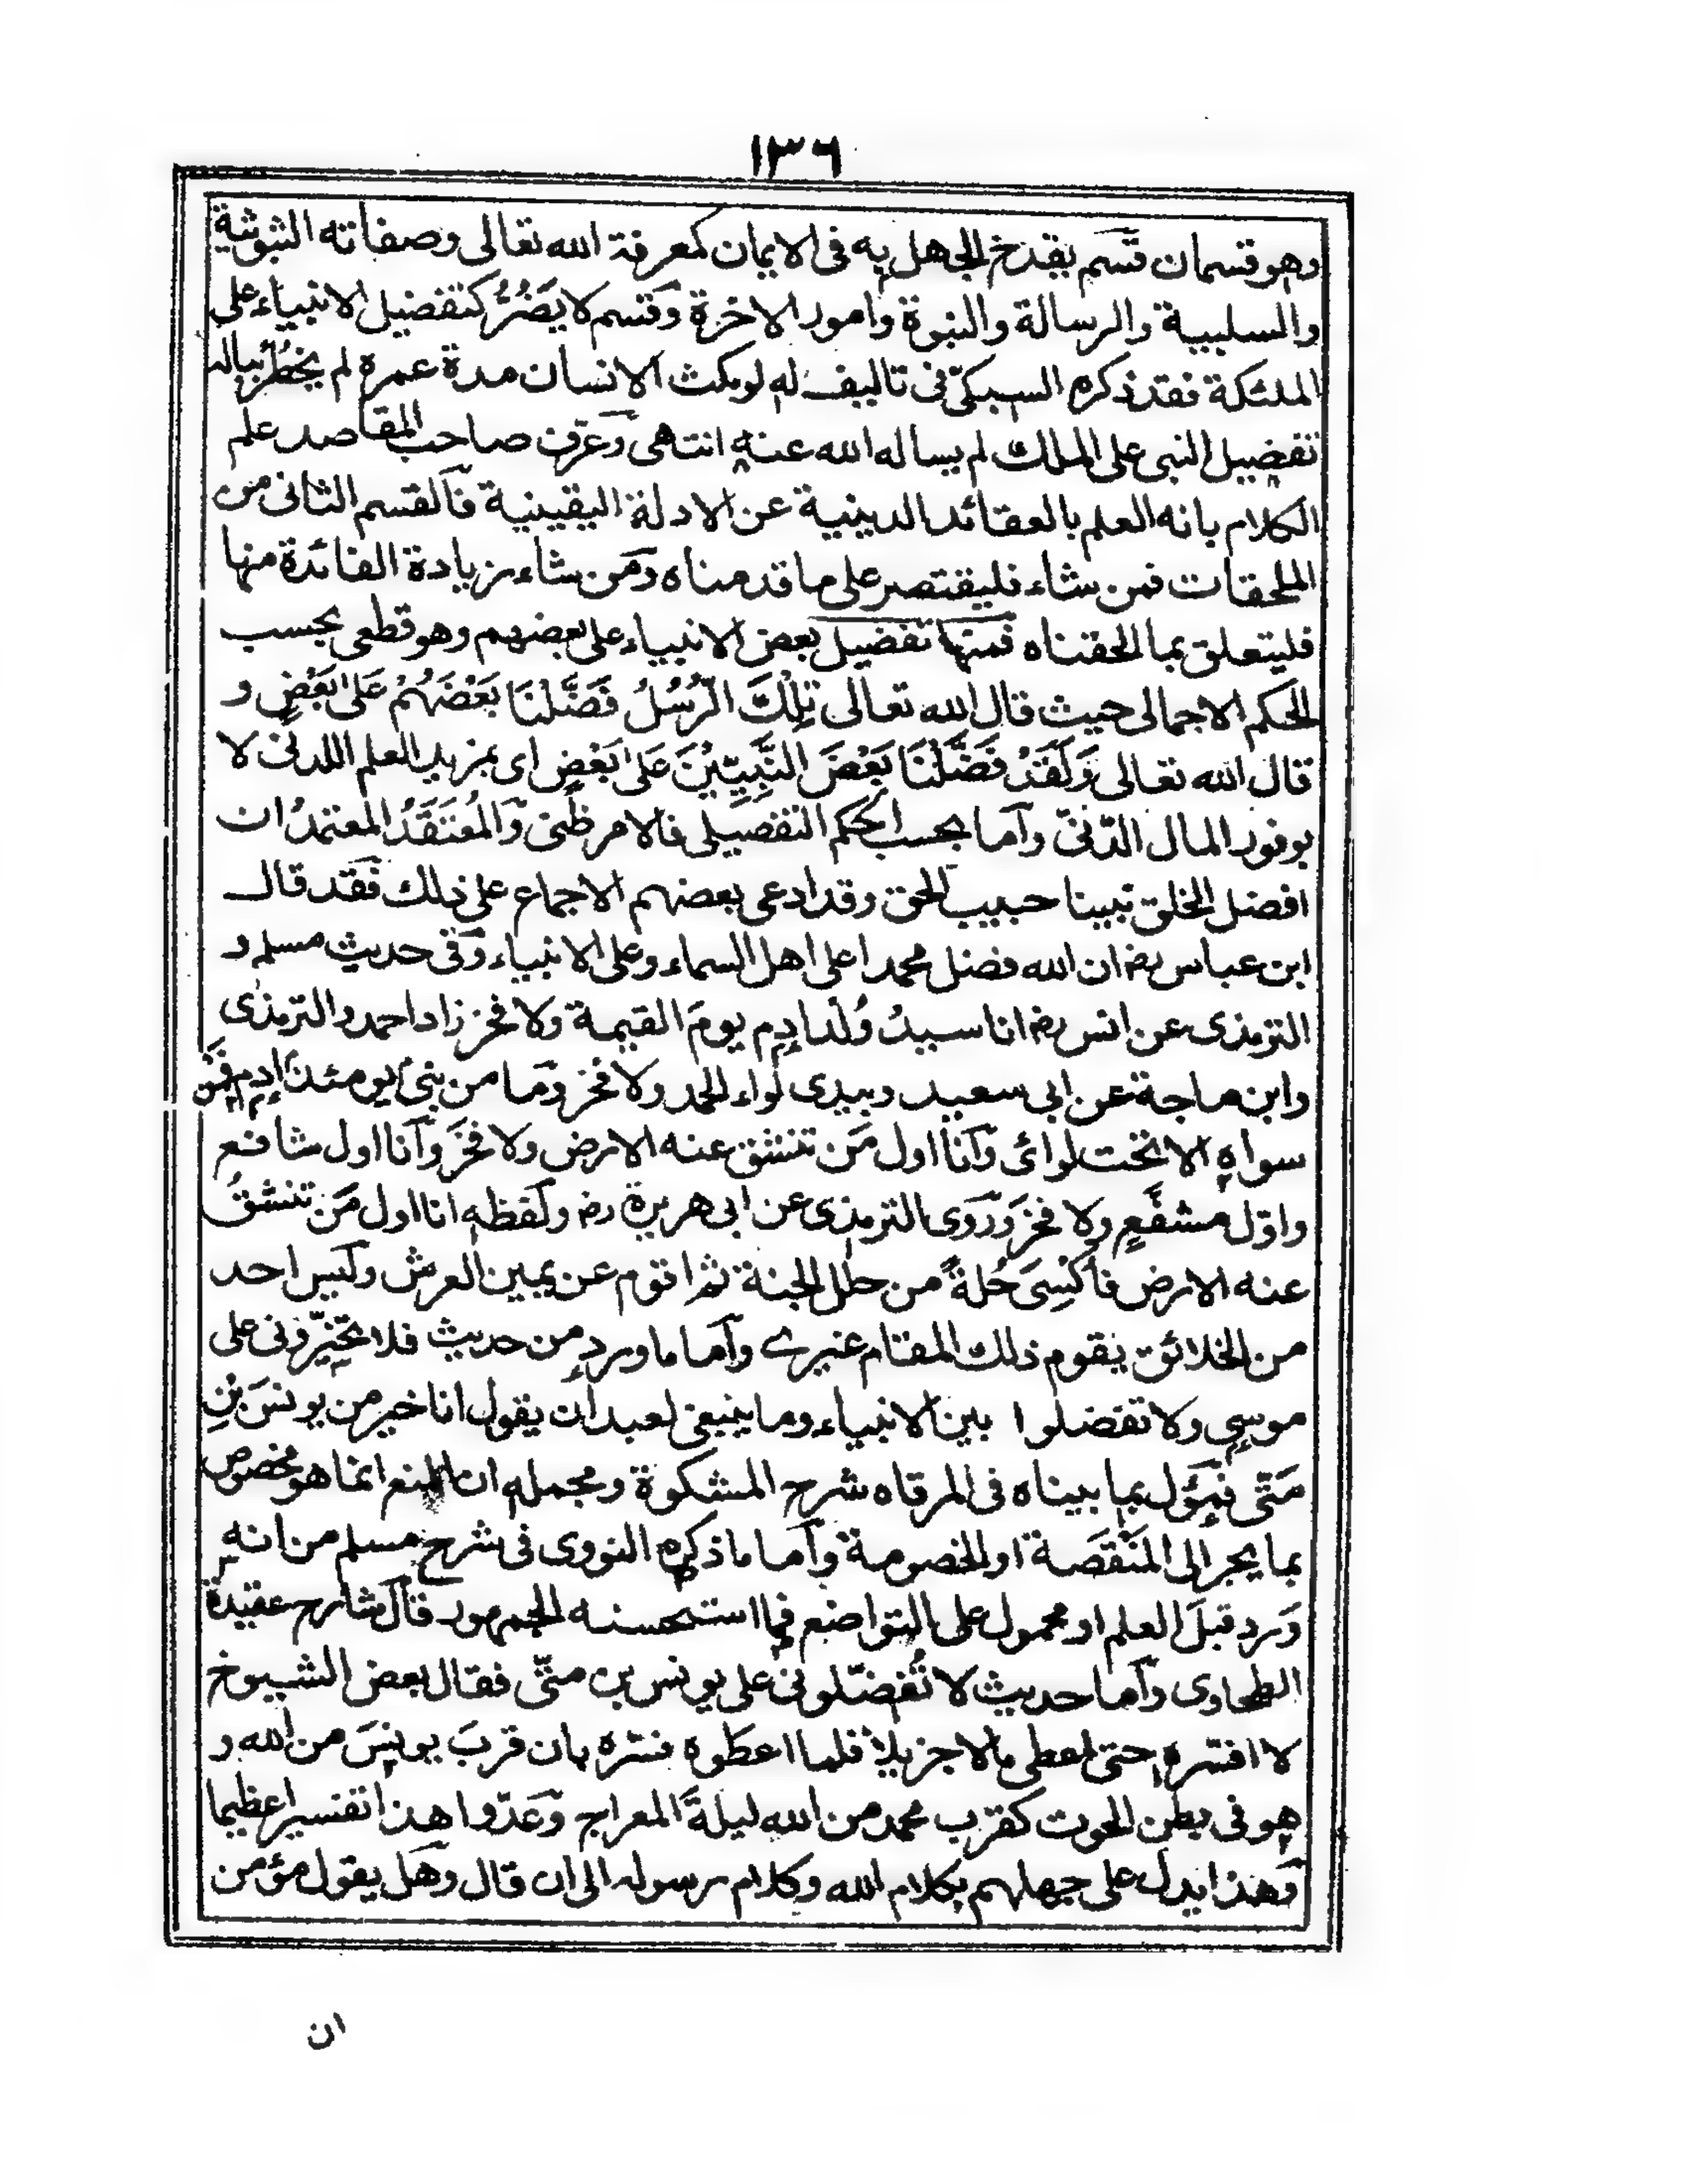 ١٣٦
وهو قسمان قسم يقدح الجهل به فى الايمان كمعرفة الله تعالى وصفاته الثبوتية
والسلبية والرسالة والنبوة وامور الاخرة وقسم لا يَضُرُّ كتفضيل الانبياء على
الملئكة فقد ذكره السبكىّ فى تاليف له لو مكث الانسان مدة عمره لم يخطُر بباله
تفضيل النبى على الملك لم يساله الله عنه انتهى وعَرّف صاحب المقاصد علم
الكلام بانه العلم بالعقائد الدينية عن الادلة اليقينية فالقسم الثانى من
الملحقات فمن شاء فليقتصر على ما قدمناه ومن شاء زيادة الفائدة منها
فليتعلق بما الحقناه فمنها تفضيل بعض الانبياء على بعضهم وهو قطعى بحسب
الحكم الاجمالى حيث قال الله تعالى تِلْكَ الرُّسُلُ فَضَّلْنَا بَعْضَهُمْ عَلىٰ بَعْضٍ و
قال الله تعالى وَلَقَدْ فَضَّلْنَا بَعْضَ النَّبِيِّيْنَ عَلىٰ بَعْضٍ اى بمزيد العلم اللدنى لا
بوفور المال الدّنىّ واما بحسب الحكم التفصيلى فالامر ظنى وَالمُعْتَقَدُ المعتمدُ ان
افضل الخلق نبينا حبيب الحق وقد ادعى بعضهم الاجماع على ذلك فقد قال
ابن عباس رضـ ان الله فضل محمدا على اهل السماء وعلى الانبياء وفى حديث مسلم و
الترمذى عن انس رضـ انا سيدُ وُلْدِ ادم يومَ القيمة ولا فخر زاد احمد والترمذى
وابن ماجة عن ابى سعيد وبيدى لواء الحمد ولا فخر وما من نبىّ يومئذ ادم فمَن
سواه الا تحت لوائى وَانا اول مَن تنشق عنه الارض ولا فخرَ وَانا اول شافع
واوّل مشفَّعٍ ولا فخرَ وَرَوى الترمذى عن ابى هريرة رضـ ولفظه انا اول مَن تنشقُ
عنه الارض فاُكْسِىَ حُلةً من حلل الجنة ثم اقوم عن يمين العرش وليس احد
من الخلائق يقوم ذلك المقام غيرے واما ما ورد من حديث فلا تخيّرونى على
موسى ولا تفضلوا بين الانبياء وما ينبغى لعبد ان يقول انا خير من يونسَ بْنِ
مَتّى فمؤل بما بيناه فى المرقاه شرح المشكوة ومجمله ان المنع انما هو مخصوص
بما يجر الى المَنْقَصَة او الخصومة وَاما ما ذكره النووى فى شرح مسلم من انه
وَرد قبلَ العلم او محمول على التواضع فما استحسنه الجمهور قال شارح عقيدة
الطحاوى وَاما حديث لا تُفضّلونى على يونس بن متّى فقال بعض الشيوخ
لا افسّره حتى اعطى مالا جزيلا فلما اعطوه فسّره بان قربَ يونسَ من الله و
هو فى بطن الحوت كقرب محمد من الله ليلةَ المعراج وَعَدّوا هذا تفسيرا عظيما
وَهذا يدل على جهلهم بكلام الله وكلام رسوله الى ان قال وهَل يقول مؤمن
ان